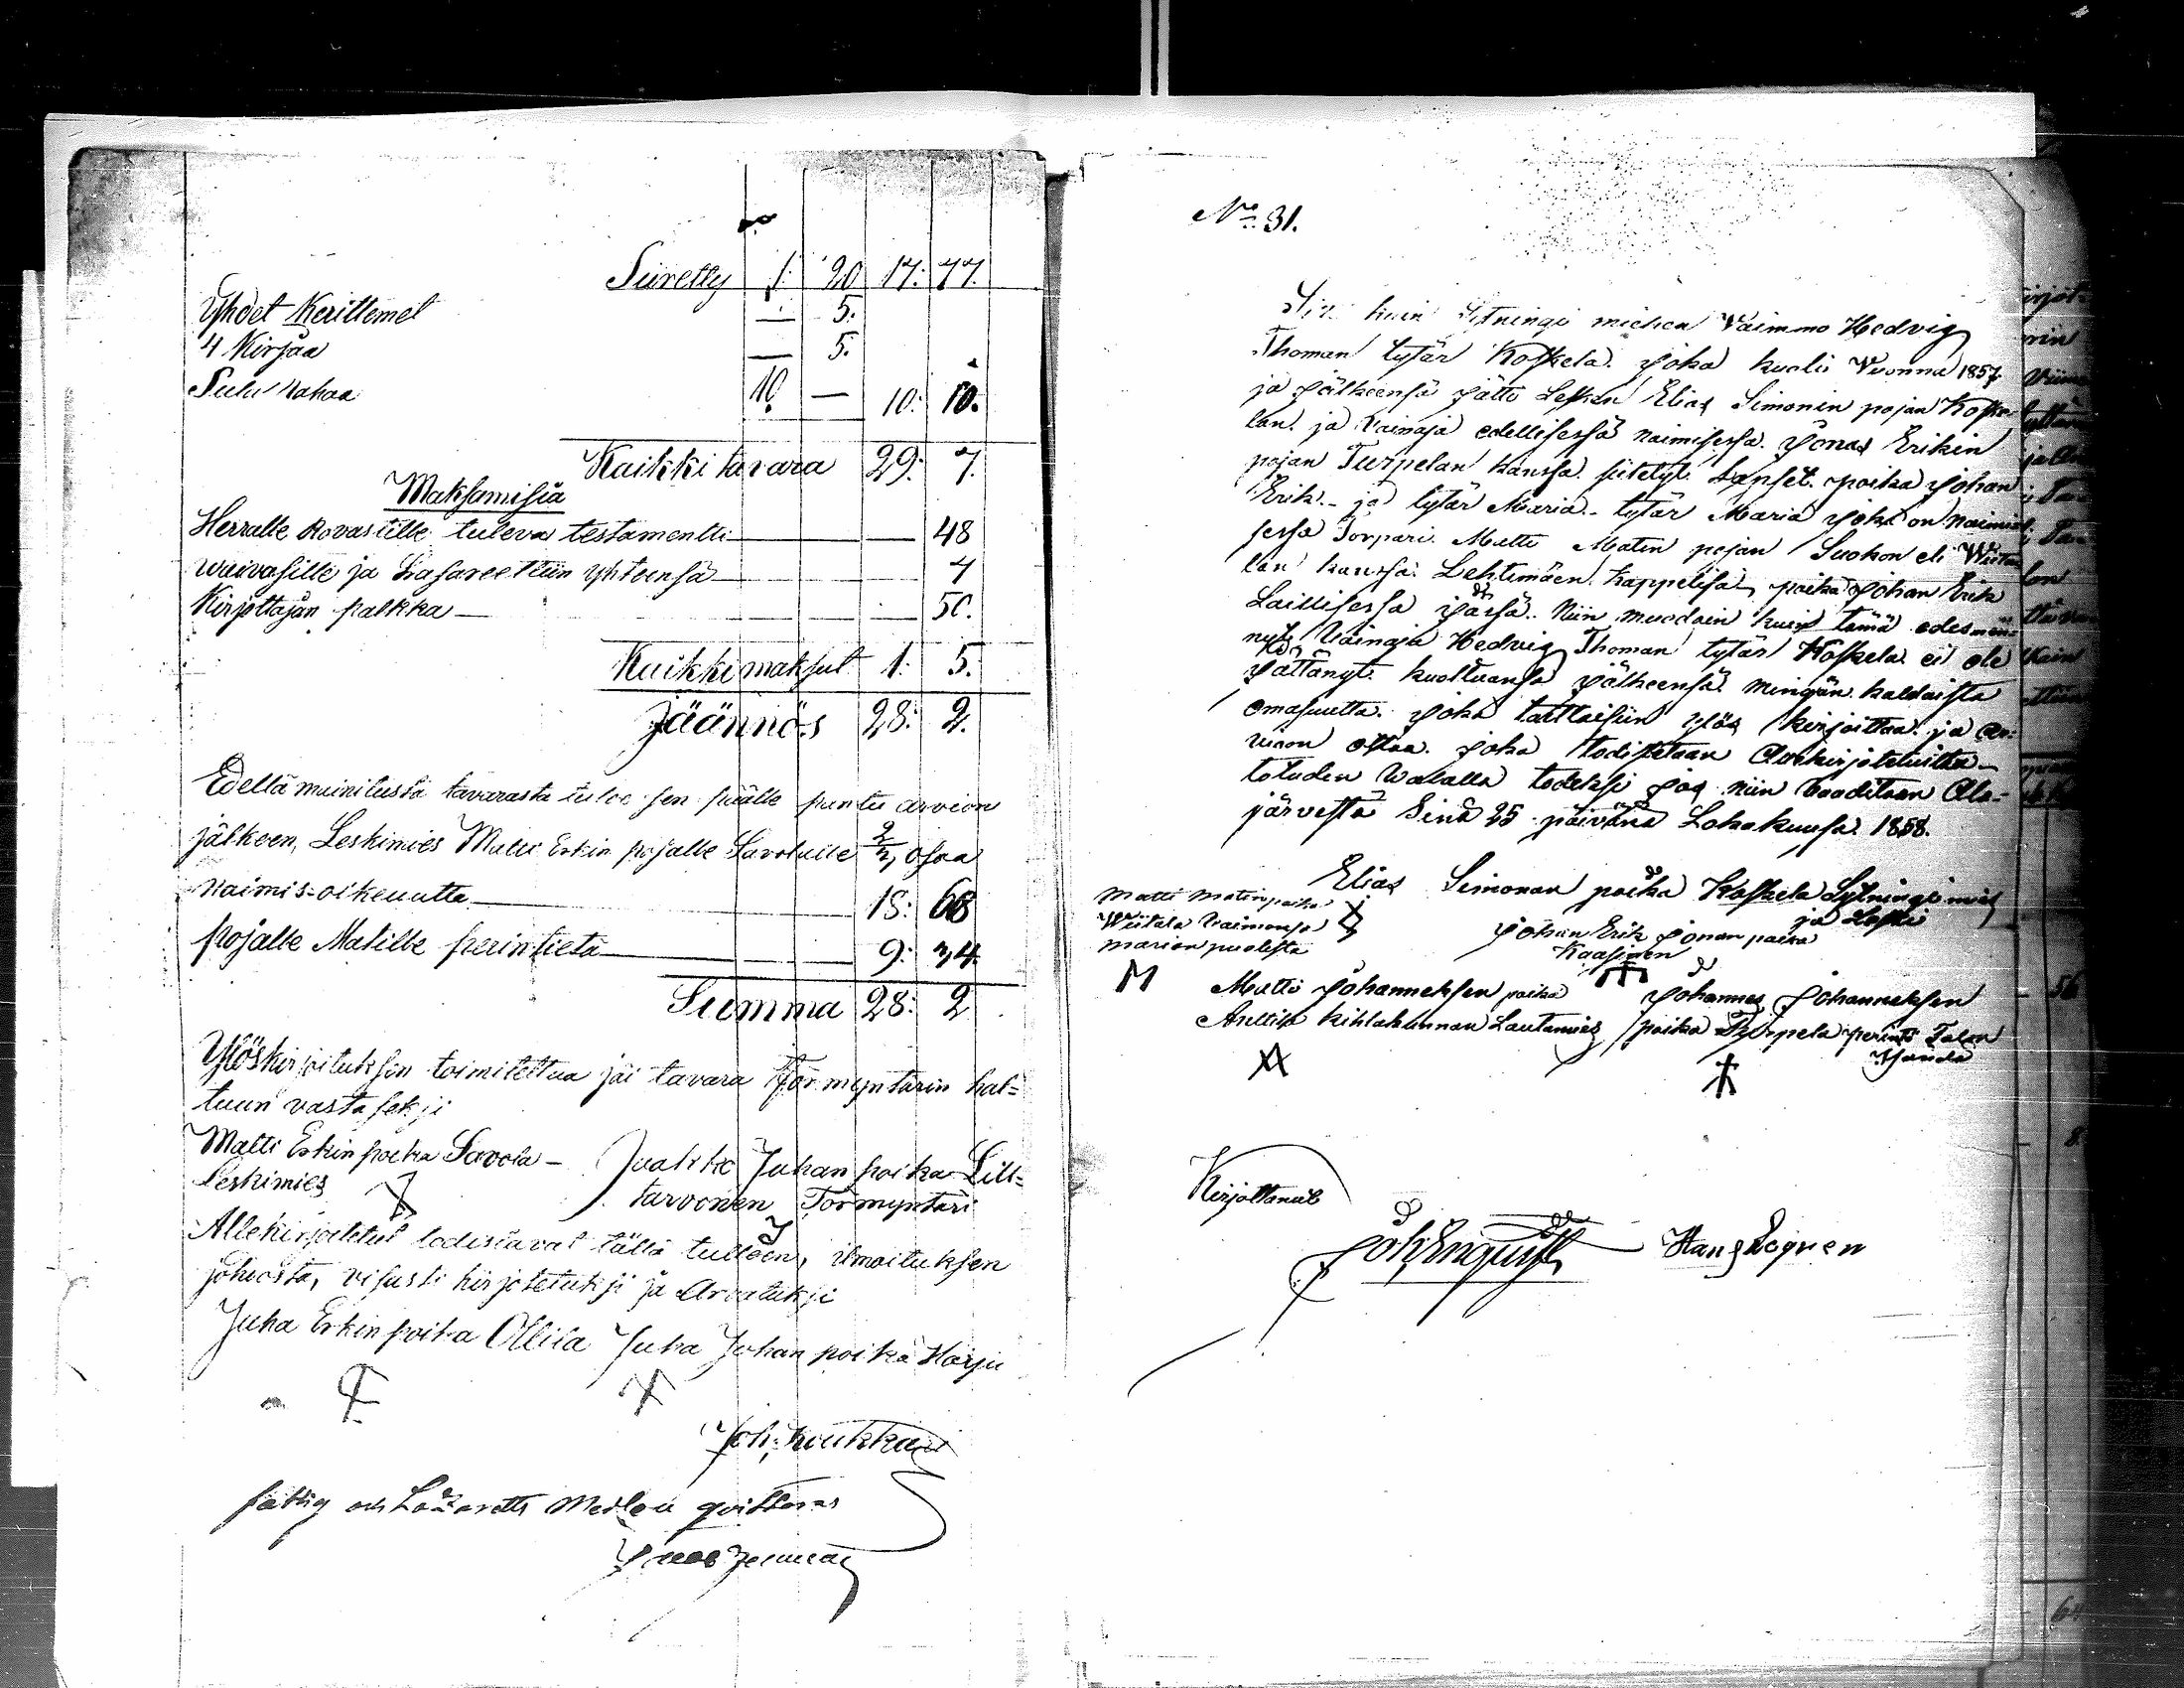 Siiretty 1: 20 17: 77.
Yhdet Kerittemet — 5.
4 Kirjaa — 5.
Sulu rahaa 10. — 10: 10.
Kaikki tavara 29: 7.
Maksamisia
Herralle Rovastille tuleva testamentti — 48
waivasille ja Lasareettiin yhteensä — 7
Kirjottajan palkka — 50.
Kaikki maksut 1: 5.
Jäännös 28: 2.
Edellä mainitusta tavarasta tulee sen päälle pantu arvion
jälkeen, Leskimies Matti Erkin pojalle Savolalle 2/3 osaa
naimis-oikeutta — 18: 68
pojalle Matille perintietä — 9: 34.
Summa 28: 2
Ylöskirjoituksen toimitettua jäi tavara Förmyntärin hal=
tuun vastaseksi
Matti Erkin poika Savola — Jaakko Juhan poika Lill=
Leskimies tarvonen Förmyntäri
Allekirjoitetut todistavat tällä tulleen, ilmoituksen
johdosta, visusti kirjotetuksi ja Arvatuksi
Juha Erkin poika Ollila Juha Juhan poika Harju
Joh: Koukkari
fattig och Lazaretts Medlen quitteras
No 31.
kuin Sytningi miehen Vaimmo Hedvig
Thoman tytär Koskela. Joka kuoli Vuonna 1857
ja Jälkeensä Jätti Lesken Elias Simonin pojan Koske-
lan. ja Vainaja edellisessä naimisessa. Jonas Erikin
pojan Turpelan kanssa siitetyt Lapset. poika Johan
Erik. - ja tytär Maria. - tytär Maria Joka on naimi
sessa Torpari. Matti Matin pojan Suokon eli Wiita
lan kanssa. Lehtimäen Kappelisa, poika Johan Erik
Laillisessa Jässä. Niin muodoin kuin tämä edesmän-
nyt Vainaja Hedvig Thoman tytär Koskela ei ole
Jättänyt kuoltuansa Jälkeensä mingän kaldaista
omasuutta. Joka taittaisiin ylös kirjoittaa. ja ar-
vioon ottaa. Joka todistetaan Allekirjoitetuilta
totuden Walalla todeksi Jos niin vaaditaan Ala-
järvestä Sinä 25 päivänä Lokakuusa. 1858.
Elias Simonan poika Koskela Sytningi mies
ja Leski
Matti Matinpoika
Wiitala Vaimonsa
marian puolesta
Johan Erik Jonan poika
Kaasinen
Matti Johanneksen poika Johannes Johanneksen
Anttila kihlakunnan Lautamies poika Turpela perintö Talon
Isändä
Kirjottanut
Joh Enqvist Hans Legren